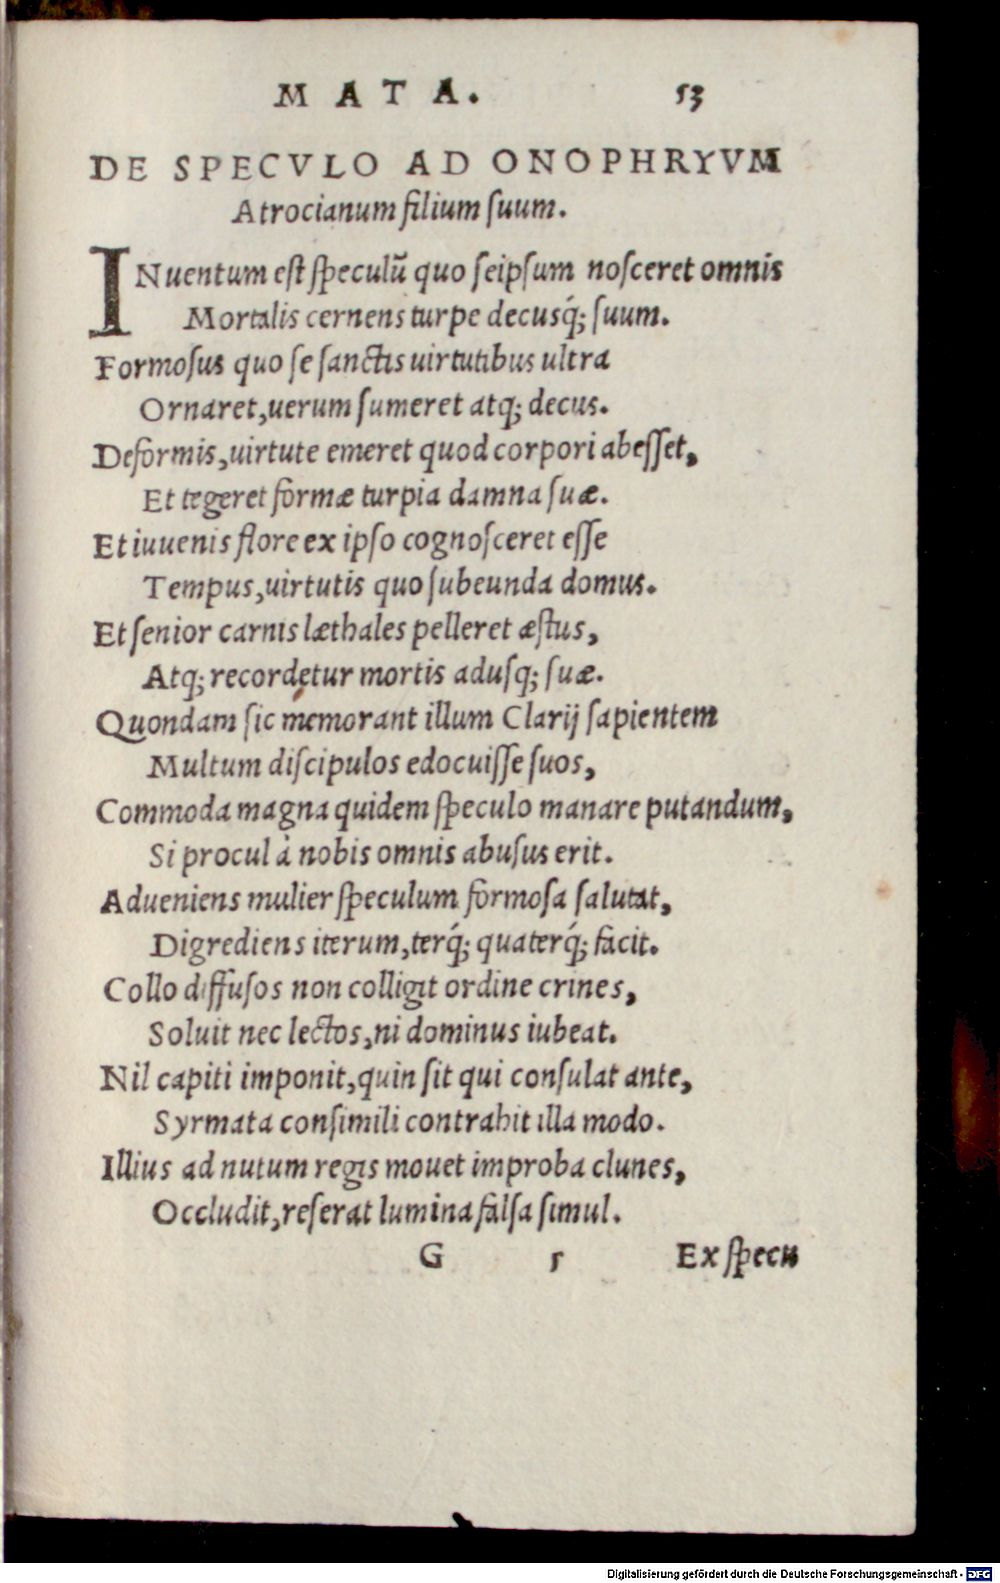 MATA. 53
DE SPECVLO AD ONOPHRYVM
Atrocianum filium ſuum.
INuentum eſt ſpeculũ quo ſeipſum noſceret omnis
Mortalis cernens turpe decusq́; ſuum.
Formoſus quo ſe ſanctis uirtutibus ultra
Ornaret, uerum ſumeret atq; decus.
Deformis, uirtute emeret quod corpori abeſſet,
Et tegeret formæ turpia damna ſuæ.
Et iuuenis flore ex ipſo cognoſceret eſſe
Tempus, uirtutis quo ſubeunda domus.
Et ſenior carnis læthales pelleret æſtus,
Atq; recordetur mortis aduſq; ſuæ.
Quondam ſic memorant illum Clarij ſapientem
Multum diſcipulos edocuiſſe ſuos,
Commoda magna quidem ſpeculo manare putandum,
Si procul à nobis omnis abuſus erit.
Adueniens mulier ſpeculum formoſa ſalutat,
Digrediens iterum, terq́; quaterq́; facit.
Collo diffuſos non colligit ordine crines,
Soluit nec lectos, ni dominus iubeat.
Nil capiti imponit, quin ſit qui conſulat ante,
Syrmata conſimili contrahit illa modo.
Illius ad nutum regis mouet improba clunes,
Occludit, reſerat lumina falſa ſimul.
G 5 Ex ſpecu
Digitalisierung gefördert durch die Deutsche Forschungsgemeinschaft - DFG